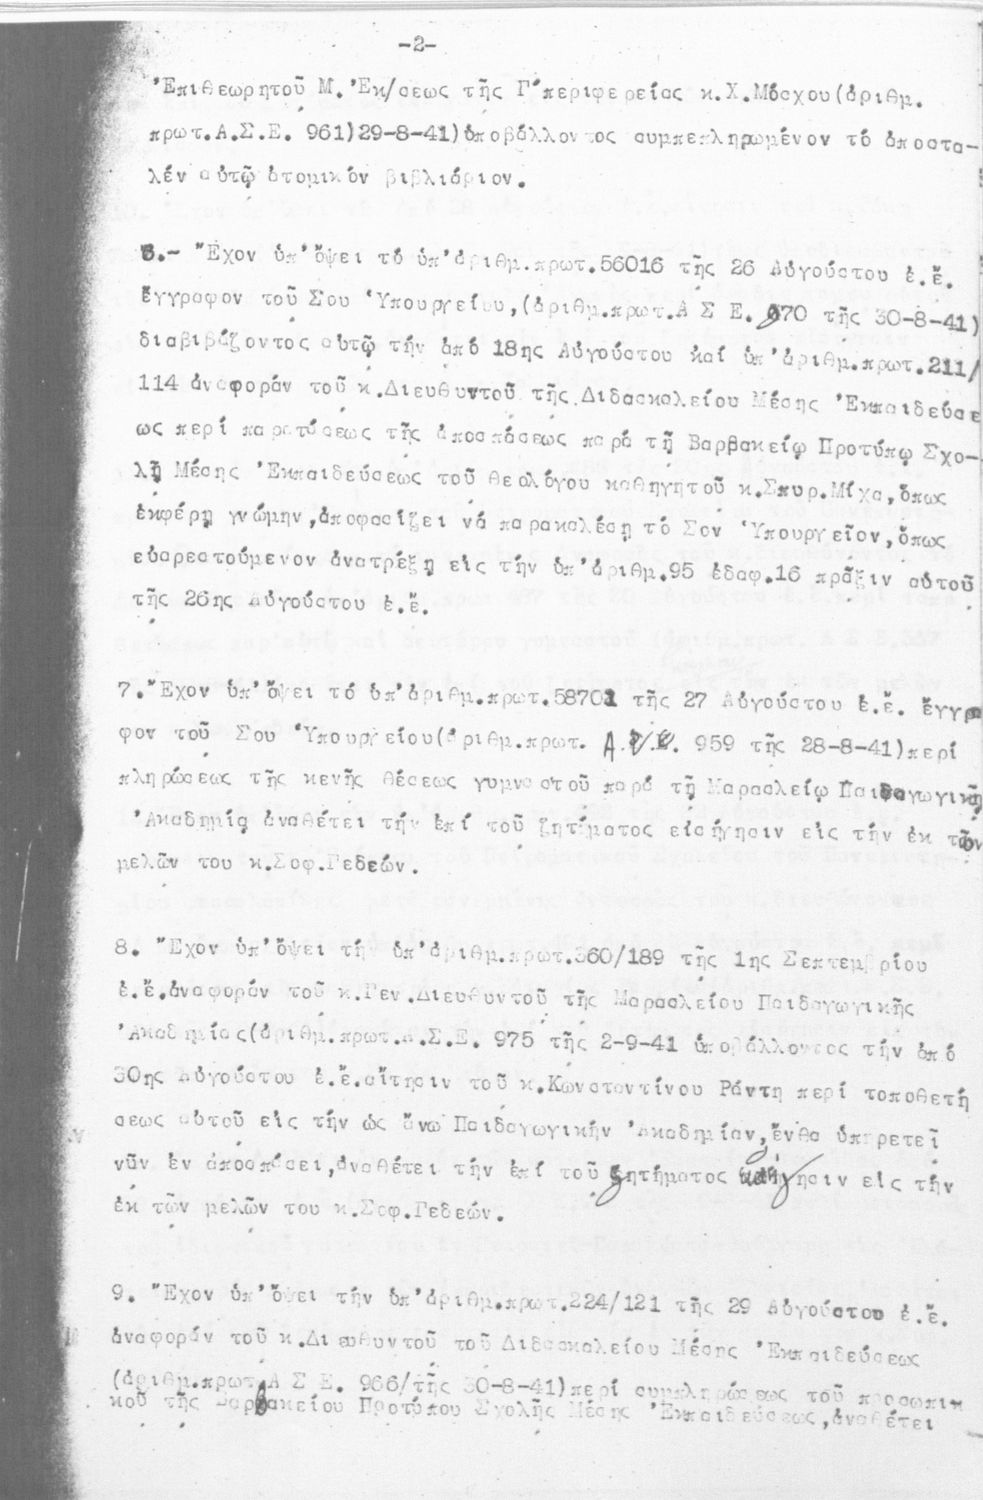 -2-
Ἐπιθεωρητοῦ Μ. Ἐκ/σεως τῆς Γ΄περιφερείας κ.Χ.Μόσχου(ἀριθμ.
πρωτ.Α.Σ.Ε. 961)29-8-41)ὑποβάλλοντος συμπεπληρωμένον τό ἀποστα-
λέν αὐτῷ ἀτομικόν βιβλιάριον.
6.- Ἔχον ὑπ'ὄψει τό ὑπ'ἀριθμ.πρωτ.56016 τῆς 26 Αὐγούστου ἐ.ἔ.
ἔγγραφον τοῦ Σου Ὑπουργείου,(ἀριθμ.πρωτ.Α Σ Ε. 970 τῆς 30-8-41)
διαβιβάζοντος αὐτῷ τήν ἀπό 18ης Αὐγούστου καί ὑπ'ἀριθμ.πρωτ.211/
114 ἀναφοράν τοῦ κ.Διευθυντοῦ τῆς Διδασκαλείου Μέσης Ἐκπαιδεύσε
ως περί παρατάσεως τῆς ἀποσπάσεως παρά τῇ Βαρβακείῳ Προτύπῳ Σχο-
λῇ Μέσης Ἐκπαιδεύσεως τοῦ θεολόγου καθηγητοῦ κ.Σπυρ.Μίχα,ὅπως
ἐκφέρῃ γνώμην,ἀποφασίζει νά παρακαλέσῃ τό Σον Ὑπουργεῖον,ὅπως
εὐαρεστούμενον ἀνατρέξῃ εἰς τήν ὑπ'ἀριθμ.95 ἐδαφ.16 πρᾶξιν αὐτοῦ
τῆς 26ης Αὐγούστου ἐ.ἔ.
7.Ἔχον ὑπ'ὄψει τό ὑπ'ἀριθμ.πρωτ.58701 τῆς 27 Αὐγούστου ἐ.ἔ. ἔγγρα
φον τοῦ Σου Ὑπουργείου(ἀριθμ.πρωτ. Α.Σ.Ε. 959 τῆς 28-8-41)περί
πληρώσεως τῆς κενῆς θέσεως γυμναστοῦ παρά τῇ Μαρασλείῳ Παιδαγωγικῇ
Ἀκαδημίᾳ ἀναθέτει τήν ἐπί τοῦ ζητήματος εἰσήγησιν εἰς τήν ἐκ τῶν
μελῶν του κ.Σοφ.Γεδεών.
8. Ἔχον ὑπ'ὄψει τήν ὑπ'ἀριθμ.πρωτ.360/189 τῆς 1ης Σεπτεμβρίου
ἐ.ἔ.ἀναφοράν τοῦ κ.Γεν.Διευθυντοῦ τῆς Μαρασλείου Παιδαγωγικῆς
Ἀκαδημίας(ἀριθμ.πρωτ.Α.Σ.Ε. 975 τῆς 2-9-41 ὑποβάλλοντος τήν ἀπό
30ης Αὐγούστου ἐ.ἔ.αἴτησιν τοῦ κ.Κωνσταντίνου Ράντη περί τοποθετή
σεως αὐτοῦ εἰς τήν ὡς ἄνω Παιδαγωγικήν Ἀκαδημίαν,ἔνθα ὑπηρετεῖ
νῦν ἐν ἀποσπάσει,ἀναθέτει τήν ἐπί τοῦ ζητήματος εἰσήγησιν εἰς τήν
ἐκ τῶν μελῶν του κ.Σοφ.Γεδεών.
9. Ἔχον ὑπ'ὄψει τήν ὑπ'ἀριθμ.πρωτ.224/121 τῆς 29 Αὐγούστου ἐ.ἔ.
ἀναφοράν τοῦ κ.Διευθυντοῦ τοῦ Διδασκαλείου Μέσης Ἐκπαιδεύσεως
(ἀριθμ.πρωτ.Α Σ Ε. 966/τῆς 30-8-41)περί συμπληρώσεως τοῦ προσωπικ
κοῦ τῆς Βαρβακείου Προτύπου Σχολῆς Μέσης Ἐκπαιδεύσεως,ἀναθέτει